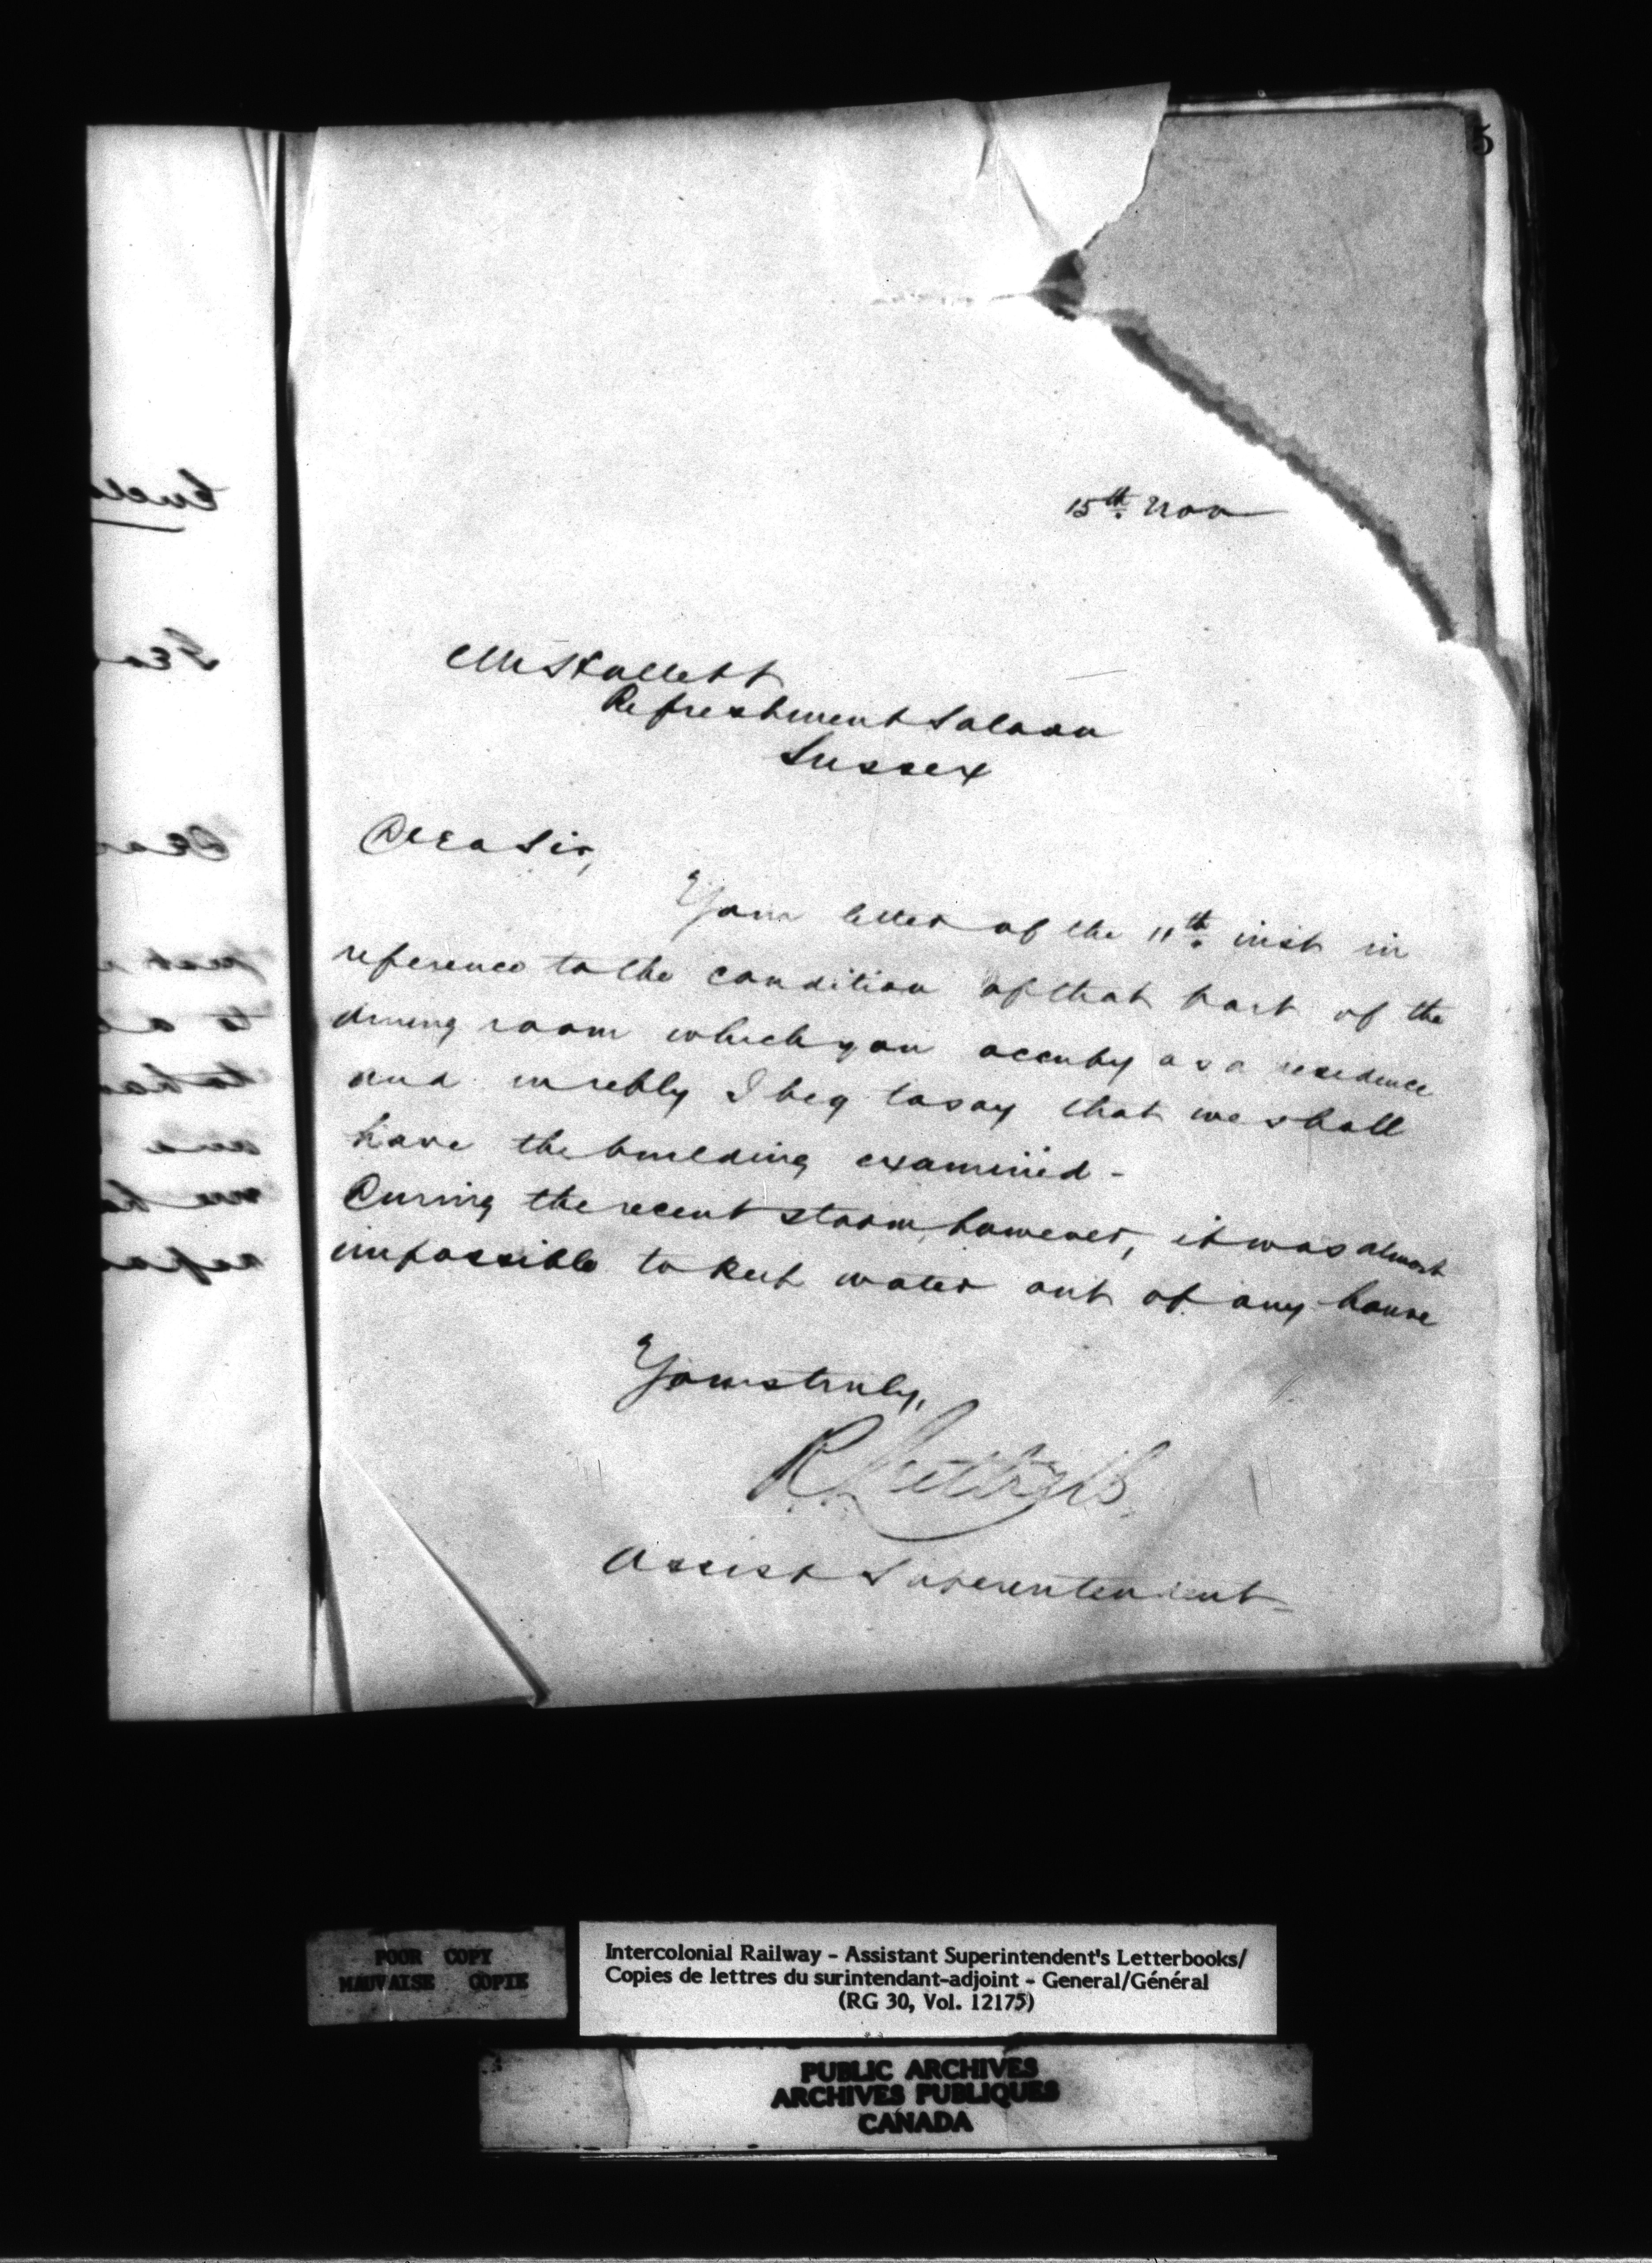 5
15th Nov
Refreshment Saloon
Sussex
Dear Sir,
Your letter of the 11th inst in
reference to the condition of that part of the
dining room which you occupy as a residence
and in reply I beg to say that we shall
have the building examined -
During the recent storm, however, it was almost
impossible to keep water out of any house
Yours truly,
Assist Superintendent
POOR COPY
MAUVAISE COPIE
Intercolonial Railway - Assistant Superintendent's Letterbooks/
Copies de lettres du surintendant-adjoint - General/Général
(RG 30, Vol. 12175)
PUBLIC ARCHIVES
ARCHIVES PUBLIQUES
CANADA